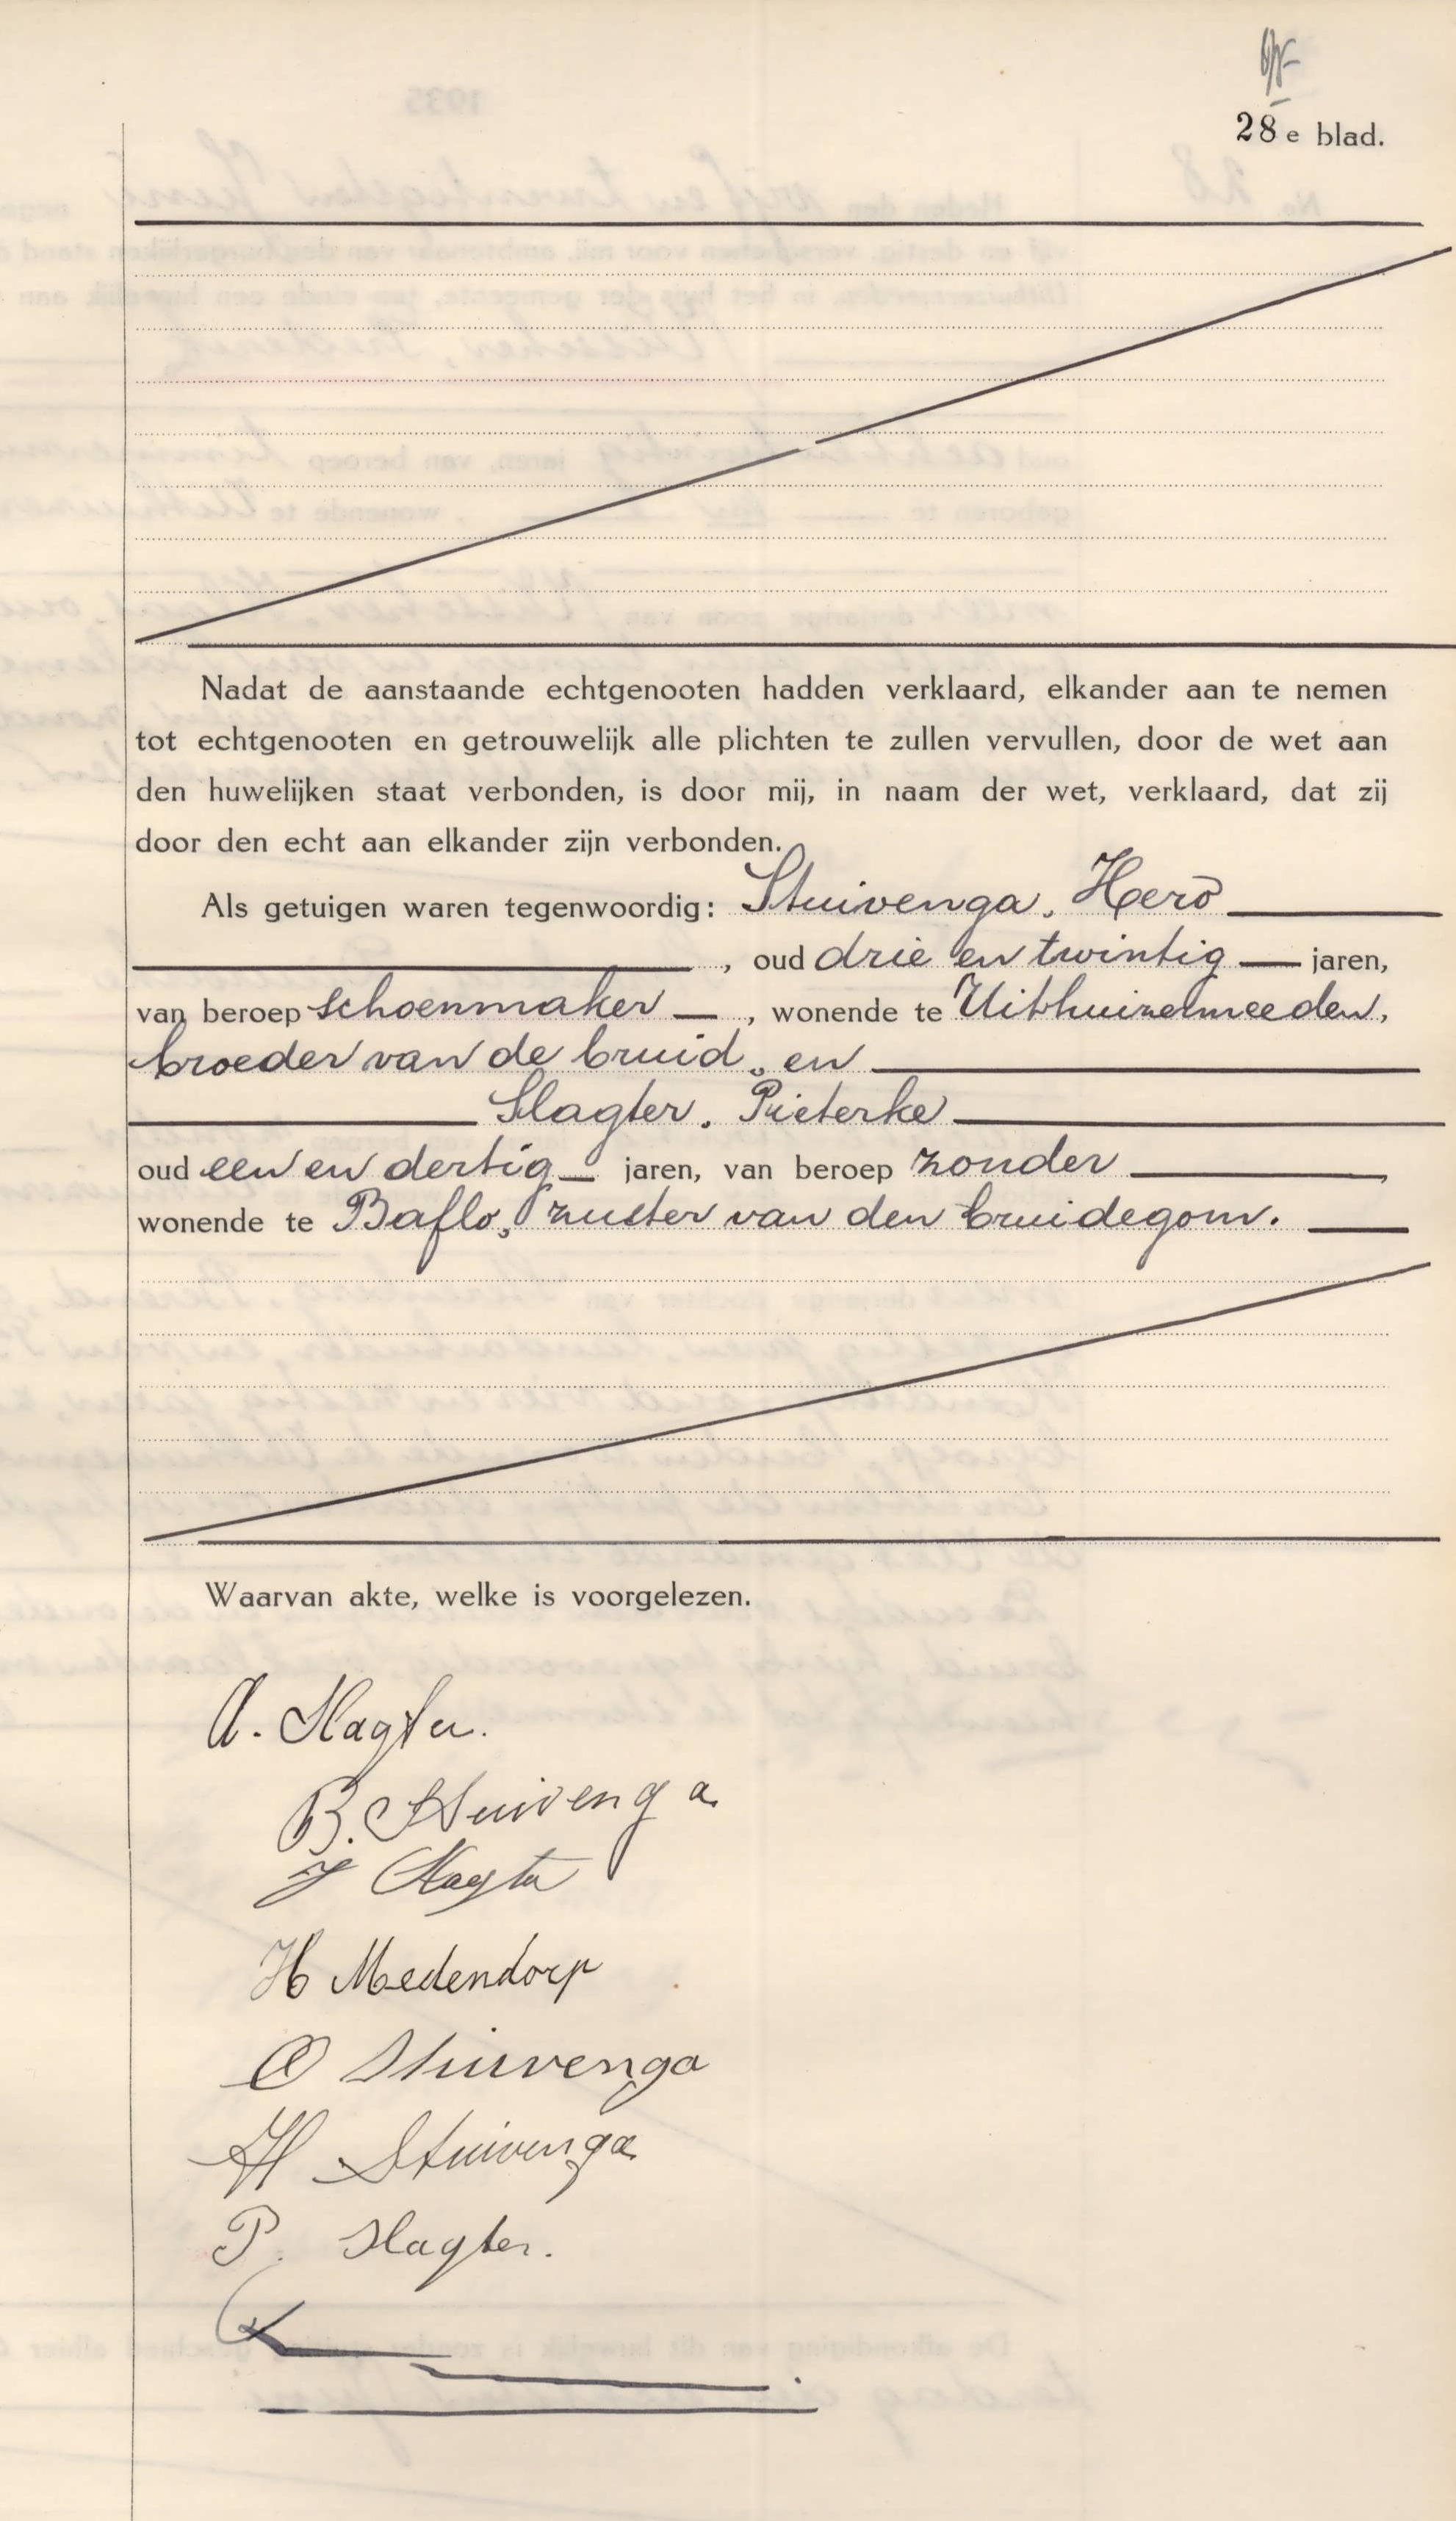 28e blad.
Nadat de aanstaande echtgenooten hadden verklaard, elkander aan te nemen
tot echtgenooten en getrouwelijk alle plichten te zullen vervullen, door de wet aan
den huwelijken staat verbonden, is door mij, in naam der wet, verklaard, dat zij
door den echt aan elkander zijn verbonden.
Als getuigen waren tegenwoordig: Stuivenga, Hero
, oud drie en twintig jaren,
van beroep schoenmaker, wonende te Uithuizermeeden,
broeder van de bruid, en
Slagter, Pieterke
oud een en dertig jaren, van beroep zonder,
wonende te Baflo, zuster van den bruidegom.
Waarvan akte, welke is voorgelezen.
A. Slagter.
B. Stuivenga
J Slagter
H Medendorp
O Stuivenga
H Stuivenga
P. Slagter.